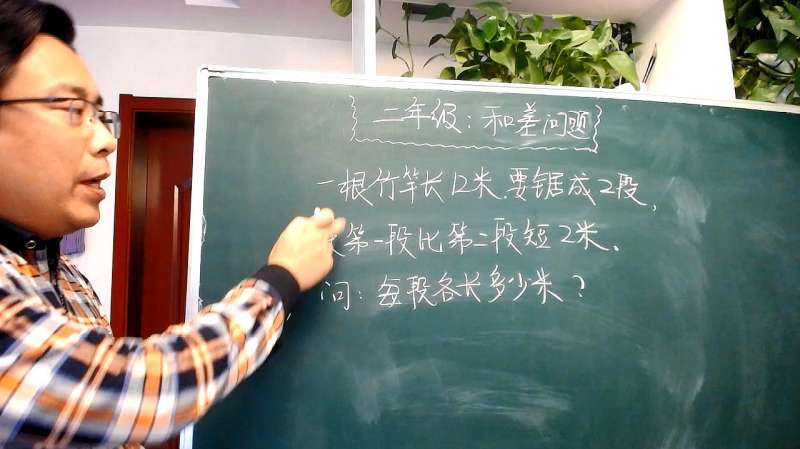 二年级:和差问题
一根竹竿长12米.要锯成2段,
第一段比第二段短2米、
问:每段各长多少米?